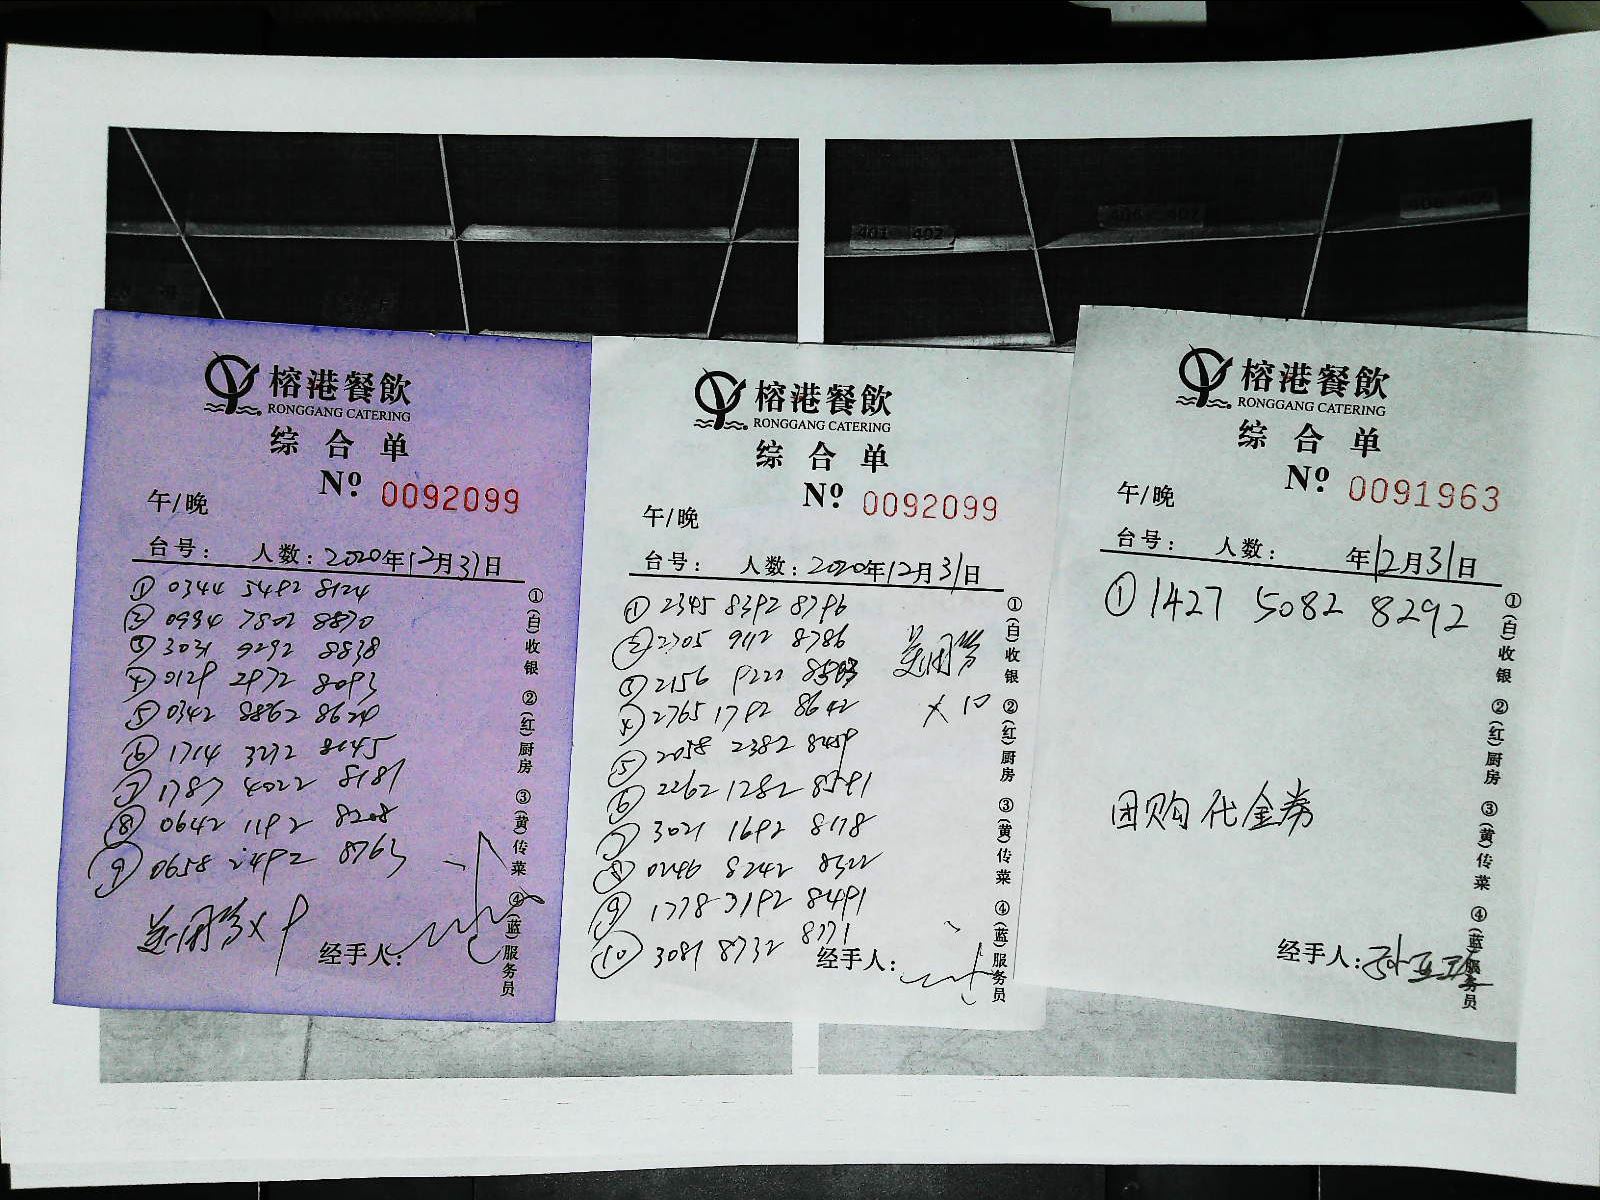 榕港餐飲
RONGGANG CATERING
综合单
Nº 0092099
午/晚
台号： 人数：2020年12月31日
① 0344 5492 8124
② 0994 7802 8870
③ 3031 9292 8838
④ 0129 2972 8093
⑤ 0342 8862 8624
⑥ 1714 3272 8145
⑦ 1787 4022 8181
⑧ 0642 1192 8208
⑨ 0658 2492 8763
美团券×9
经手人：
①(白)收银 ②(红)厨房 ③(黄)传菜 ④(蓝)服务员
榕港餐飲
RONGGANG CATERING
综合单
Nº 0092099
午/晚
台号： 人数：2020年12月31日
① 2345 8392 8796
② 2705 9112 8786
③ 2156 9222
④ 2765 1792 8642
⑤ 2058 2382 8459
⑥ 2262 1282 8591
⑦ 3021 1692 8118
⑧ 0246 8242 8322
⑨ 1778 3192 8491
⑩ 3081 8732 8171
美团券
×10
经手人：
①(白)收银 ②(红)厨房 ③(黄)传菜 ④(蓝)服务员
榕港餐飲
RONGGANG CATERING
综合单
Nº 0091963
午/晚
台号： 人数： 年12月31日
① 1427 5082 8292
团购代金券
经手人：
①(白)收银 ②(红)厨房 ③(黄)传菜 ④(蓝)服务员
401 402